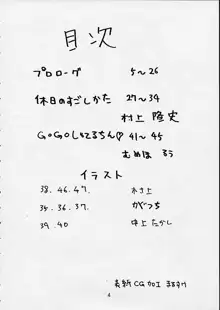 目次
プロローグ 5~26
休日のすごしかた 27~34
村上 隆史
GoGo!してるちん♡ 41~45
むめほ るう
イラスト
38.46.47. 木さ上
35.36.37. がぐっち
39.40 中上たかし
表紙CG加工
4